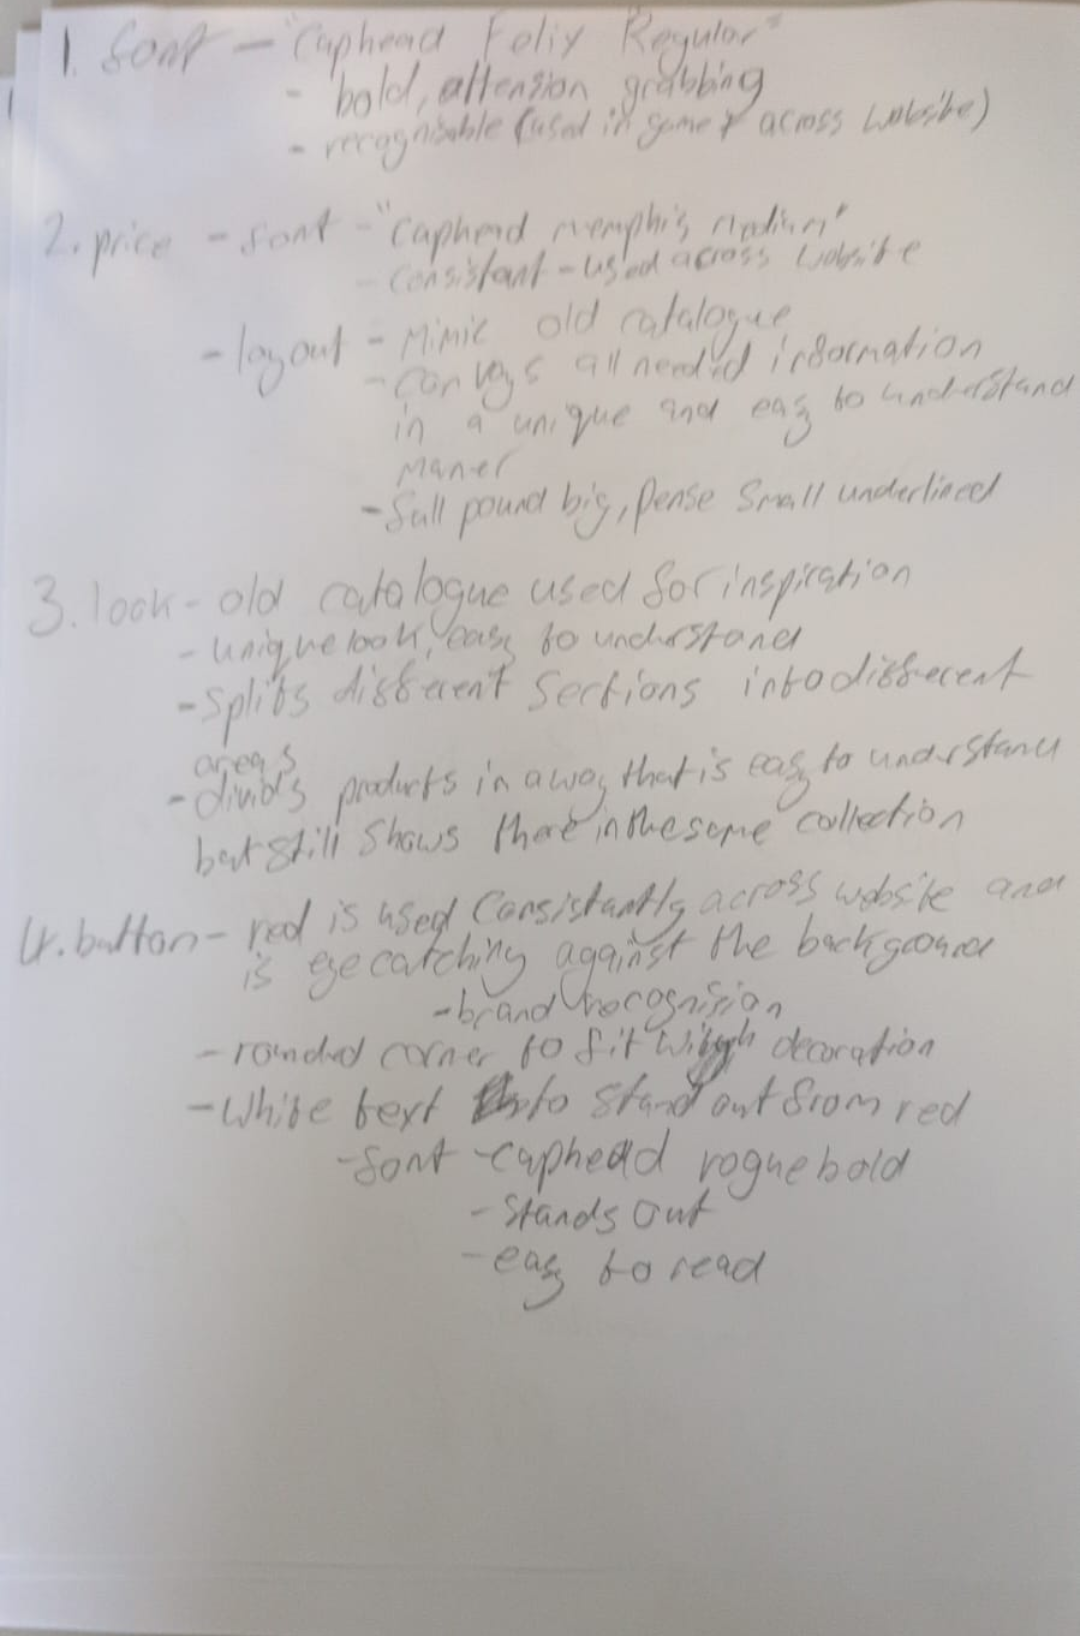 1. font - "Caphead Felix Regular"
- bold, attension grabbing
- recognisable (used in game & across website)
2. price - font - "Caphead memphis medium"
- consistant - used across website
- layout - Mimic old catalogue
- convays all needed information
in a unique and easy to understand
maner
- full pound big, pense small underlined
3. look - old catalogue used for inspiration
- unique look, easy to understand
- splits different sections into different
areas
- divids products in a way that is easy to understand
but still shows there in the same collection
4. button - red is used consistantly across website and
is eyecatching against the background
- brand recognision
- rounded corner to fit with decoration
- white text to stand out from red
- font - caphead rogue bold
- stands out
- easy to read